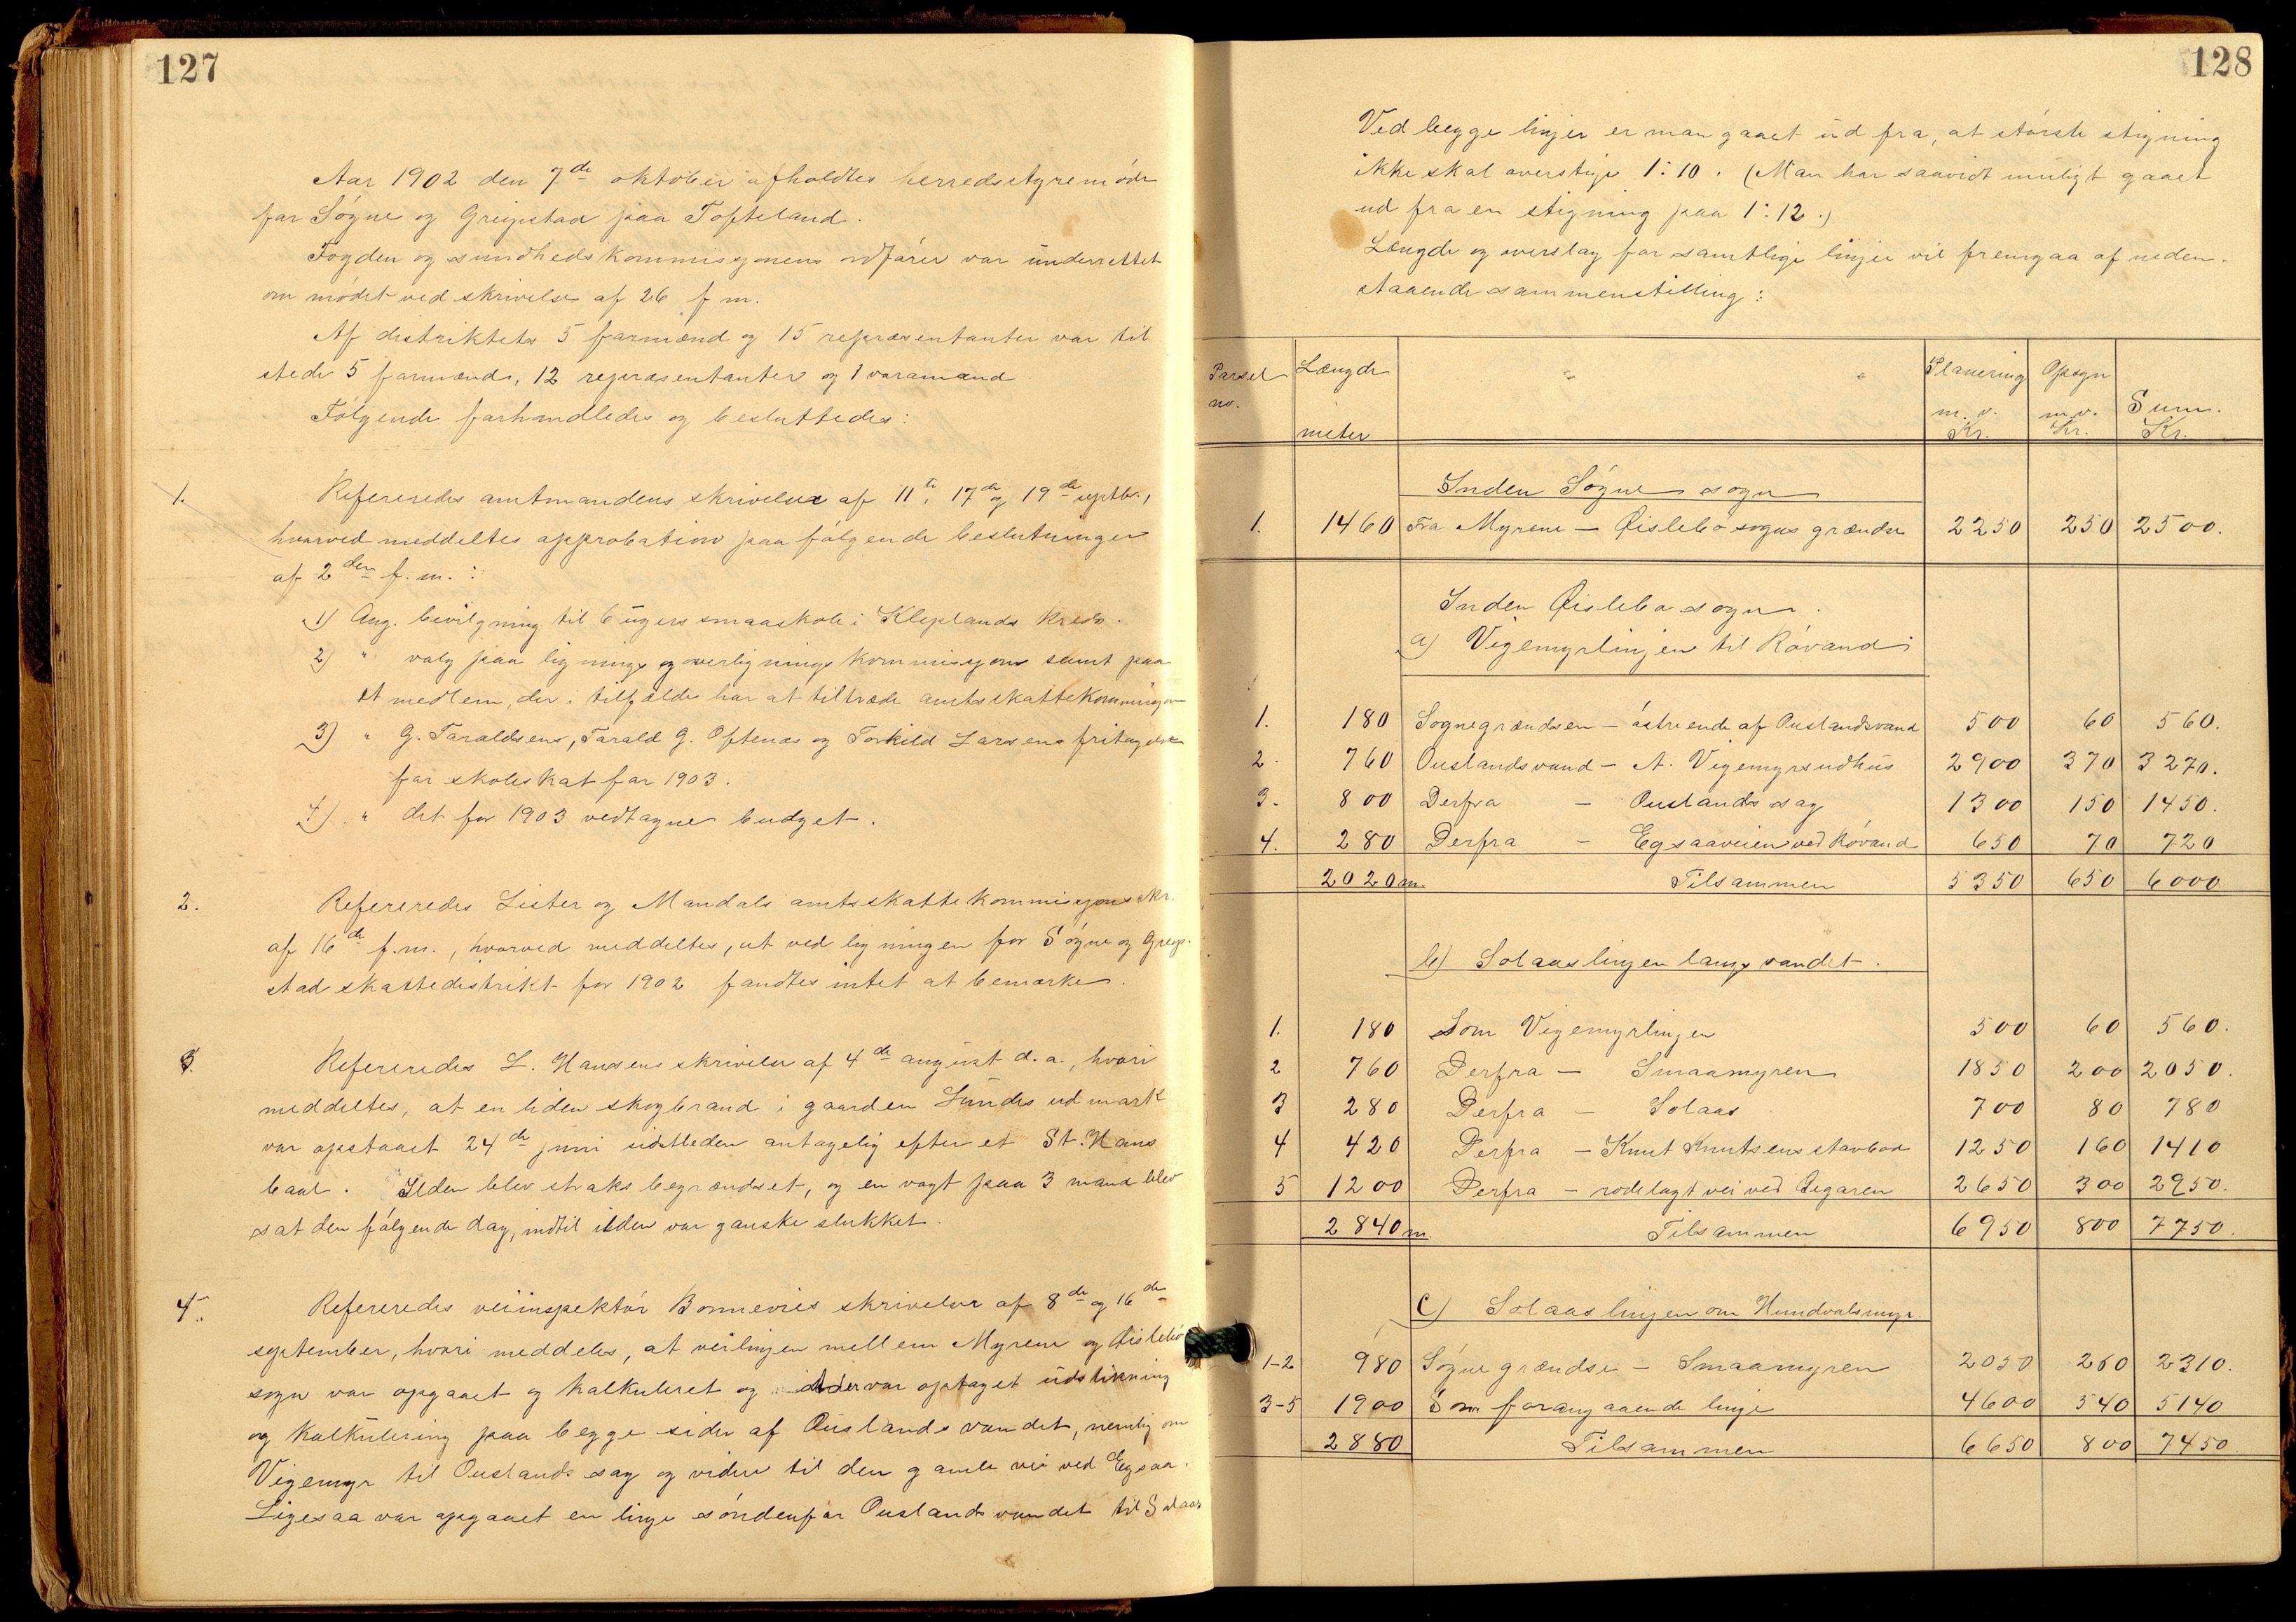 127
Aar 1902 den 7de oktober afholdtes herredsstyremøde
for Søgne og Greipstad paa Tofteland.
Fogden og sundhedskommisjonens ordfører var underrettet
om mødet ved skrivelse af 26 f. m.
Af distriktets 5 formænd og 15 repræsentanter var til
stede 5 formænd, 12 repræsentanter og 1 varamand
Følgende forhandledes og besluttedes:
1. Refereredes amtmandens skrivelser af 11te, 17de og 19de septbr.,
hvorved meddeltes approbation paa følgende beslutninger
af 2den f. m.:
1) Ang. bevilgning til 6 ugers smaaskole i Kleplands kreds.
2) " valg paa lignings og overlignings kommisjon samt paa
et medlem, der i tilfælde har at tiltræde amtsskattekommisjon
3) " G. Taraldsens, Tarald G. Oftenæs og Torkild Larsens fritagelse
for skoleskat for 1903.
4) " det for 1903 vedtagne budget.
2. Refereredes Lister og Mandals amtsskattekommisjons skr.
af 16de f. m., hvorved meddeltes, at ved ligningen for Søgne og Greip-
stad skattedistrikt for 1902 fandtes intet at bemærke.
3. Refereredes L. Hansens skrivelse af 4de august d. a., hvori
meddeltes, at en liden skogbrand i gaarden Lundes udmark
var opstaaet 24de juni sidstleden antagelig efter et St. Hans
baal. Ilden blev straks begrændset, og en vagt paa 3 mand blev
sat den følgende dag, indtil ilden var ganske slukket.
4. Refereredes veiinspektør Bonnevies skrivelser af 8de og 16de
september, hvori meddeles, at veilinjen mellem Myrene og Øislebø
sogn var opgaaet og kalkuleret og at der var optaget udstikning
og kalkulering paa begge sider af Ouslands vandet, nemlig om
Vigemyr til Ouslands sag og videre til den gamle vei ved Egsaa.
Ligesaa var opgaaet en linje søndenfor Ouslandsvandet til Solaas
128
Ved begge linjer er man gaaet ud fra, at største stigning
ikke skal overstige 1:10. (Man har saavidt muligt gaaet
ud fra en stigning paa 1:12.)
Længde og overslag for samtlige linjer vil fremgaa af neden-
staaende sammenstilling:
Parsel no. Længde meter Planering m. v. Kr. Opsyn m. v. Kr. Sum. Kr.
Inden Søgne sogn
1. 1460 Fra Myrene - Øislebo sogns grændse 2250 250 2500.
Inden Øislebo sogn.
a) Vigemyrlinjen til Røvand
1. 180 Sognegrændsen - østre ende af Ouslandsvand 500 60 560.
2. 760 Ouslandsvand - A. Vigemyrs udhus 2900 370 3270.
3. 800 Derfra - Ouslands sag 1300 150 1450.
4. 280 Derfra - Egsaaveien ved Røvand 650 70 720
2020 m. Tilsammen 5350 650 6000
b) Solaaslinjen langs vandet.
1. 180 Som Vigemyrlinjen 500 60 560.
2 760 Derfra - Smaamyren 1850 200 2050.
3 280 Derfra - Solaas 700 80 780
4 420 Derfra - Knut Knutsens stavbod 1250 160 1410
5 1200 Derfra - rodelagt vei ved Øegaren 2650 300 2950.
2840 m. Tilsammen 6950 800 7750.
c) Solaaslinjen om Hundvalsmyr.
1-2 980 Søgne grændse - Smaamyren 2050 260 2310.
3-5 1900 Som forangaaende linje 4600 540 5140
2880 Tilsammen 6650 800 7450